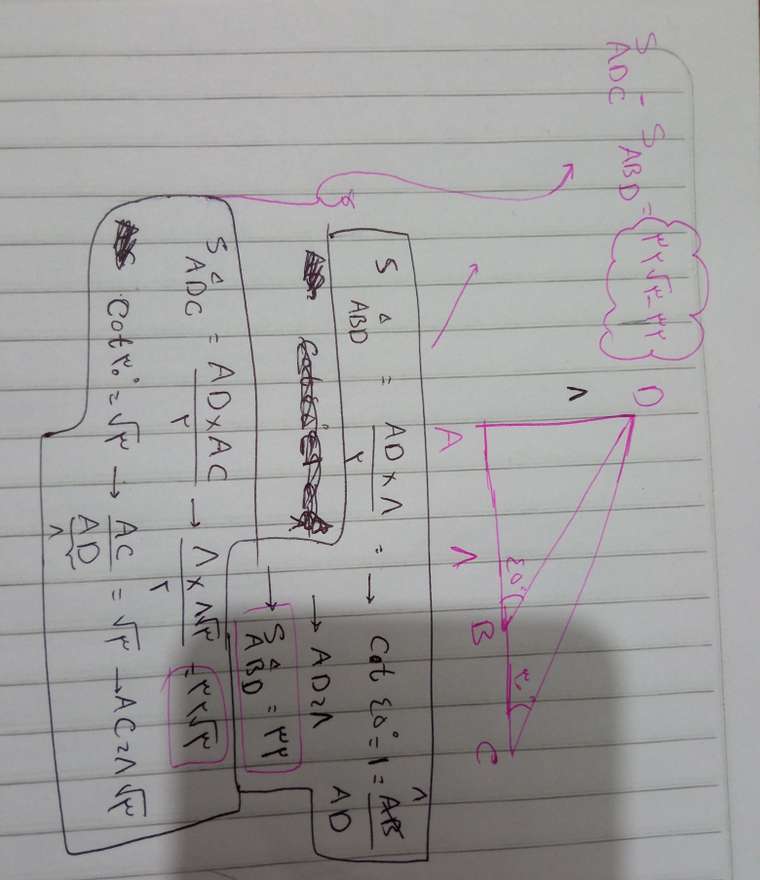 S ADC − S ABD = ۳۲√۳ − ۳۲
D
۸
A ۸ ٤٥° B ۳۰° C
S △ABD = AD×۸/۲ = → Cot ٤٥° = ۱ = AB/AD ۸
→ AD = ۸
→ S △ABD = ۳۲
S △ADC = AD×AC/۲ → ۸×۸√۳/۲ = ۳۲√۳
Cot ۳۰° = √۳ → AC/AD = √۳ → AC = ۸√۳
۸